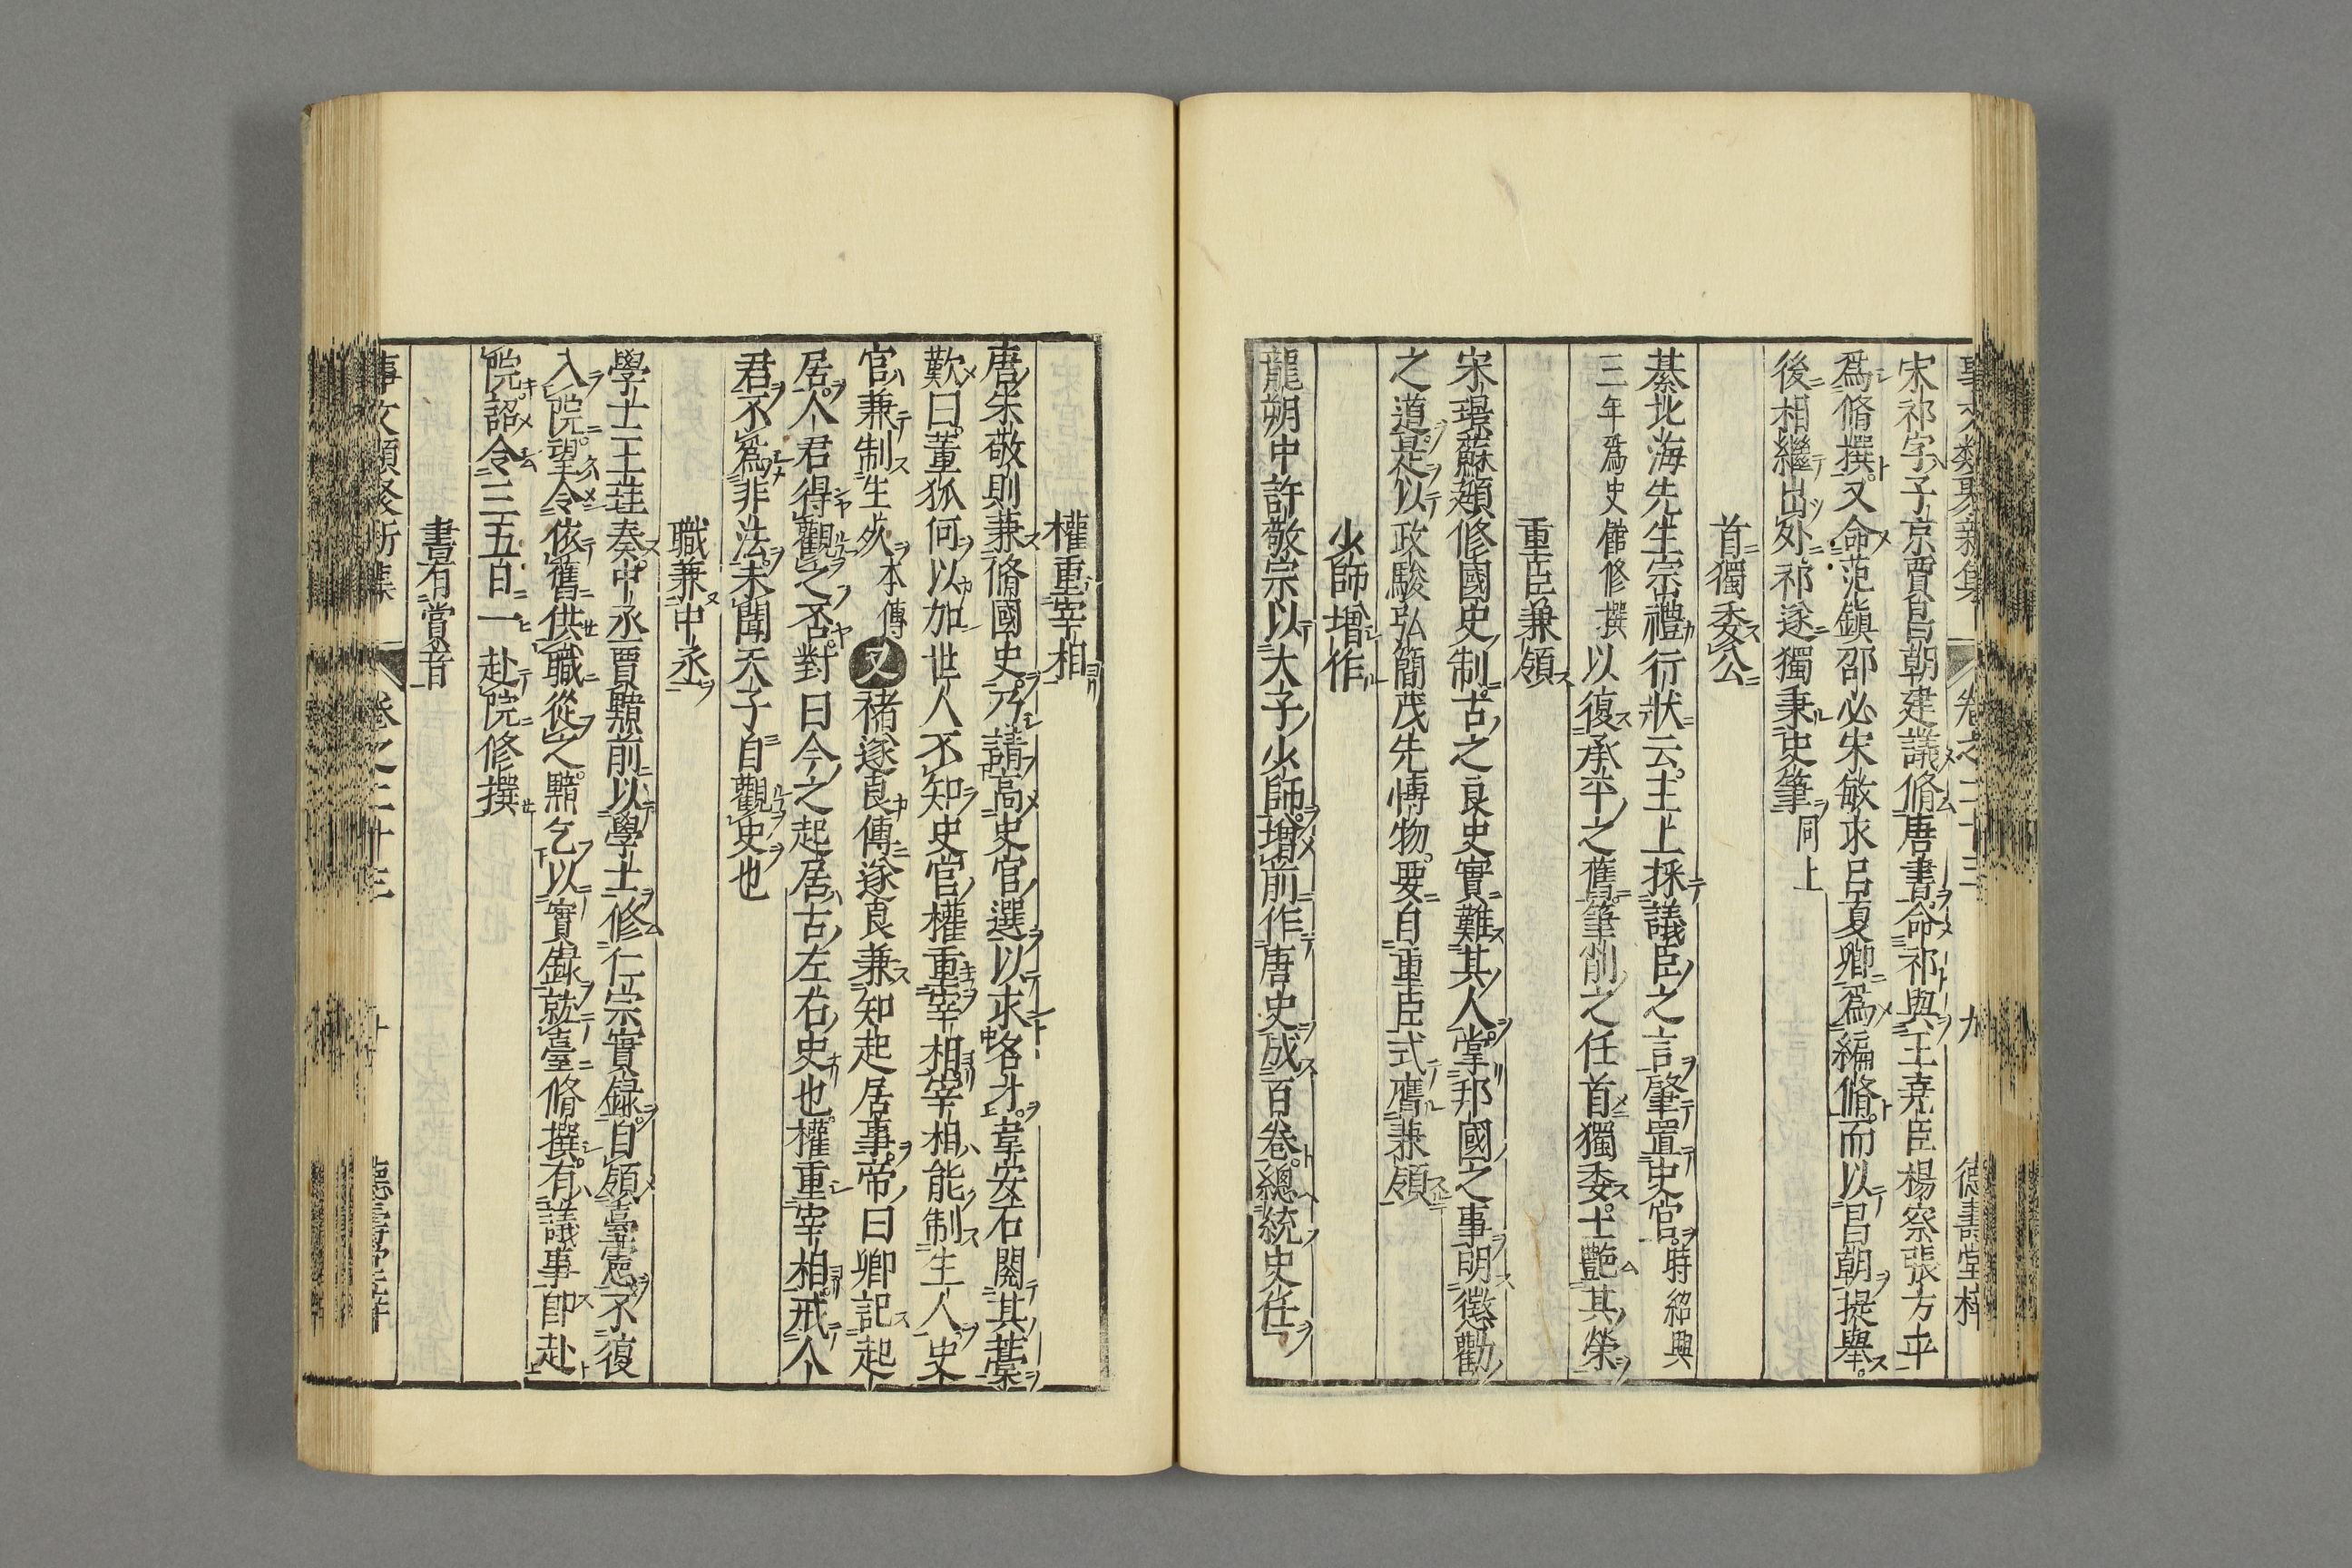 事文類聚新集 卷之二十三 九 德壽堂梓
宋祁字子京賈昌朝建議脩唐書命祁與王堯臣楊察張方平
爲脩撰又命范鎭邵必宋敏求呂夏卿爲編脩而以昌朝提舉
後相繼出外祁遂獨秉史筆同上
首獨委公
綦北海先生宗禮行狀云主上採議臣之言肇置史官時紹興
三年爲史館修撰以復承平之舊筆削之任首獨委公士艶其榮
重臣兼領
宋璟蘇頲修國史制古之良史實難其人掌邦國之事明懲勸
之道是以政駿弘簡茂先愽物要自重臣式膺兼領
少師增作
龍朔中許敬宗以太子少師增前作唐史成百卷總統史任
權重宰相
唐朱敬則兼脩國史乃請高史官選以求略才韋安石閱其藁
歎曰董狐何以加世人不知史官權重宰相宰相能制生人史
官兼制生死本傳又禇遂良傳遂良兼知起居事帝曰卿記起
居人君得觀之否對曰今之起居古左右史也權重宰相戒人
君不爲非法未聞天子自觀史也
職兼中丞
學士王珪奏中丞賈黯前以學士修仁宗實録自領臺憲不復
入院望令依舊供職從之黯乞以實録就臺脩撰有議事即赴
院詔令三五日一赴院修撰
書有賞音
事文類聚新集 卷之二十三 十 德壽堂梓